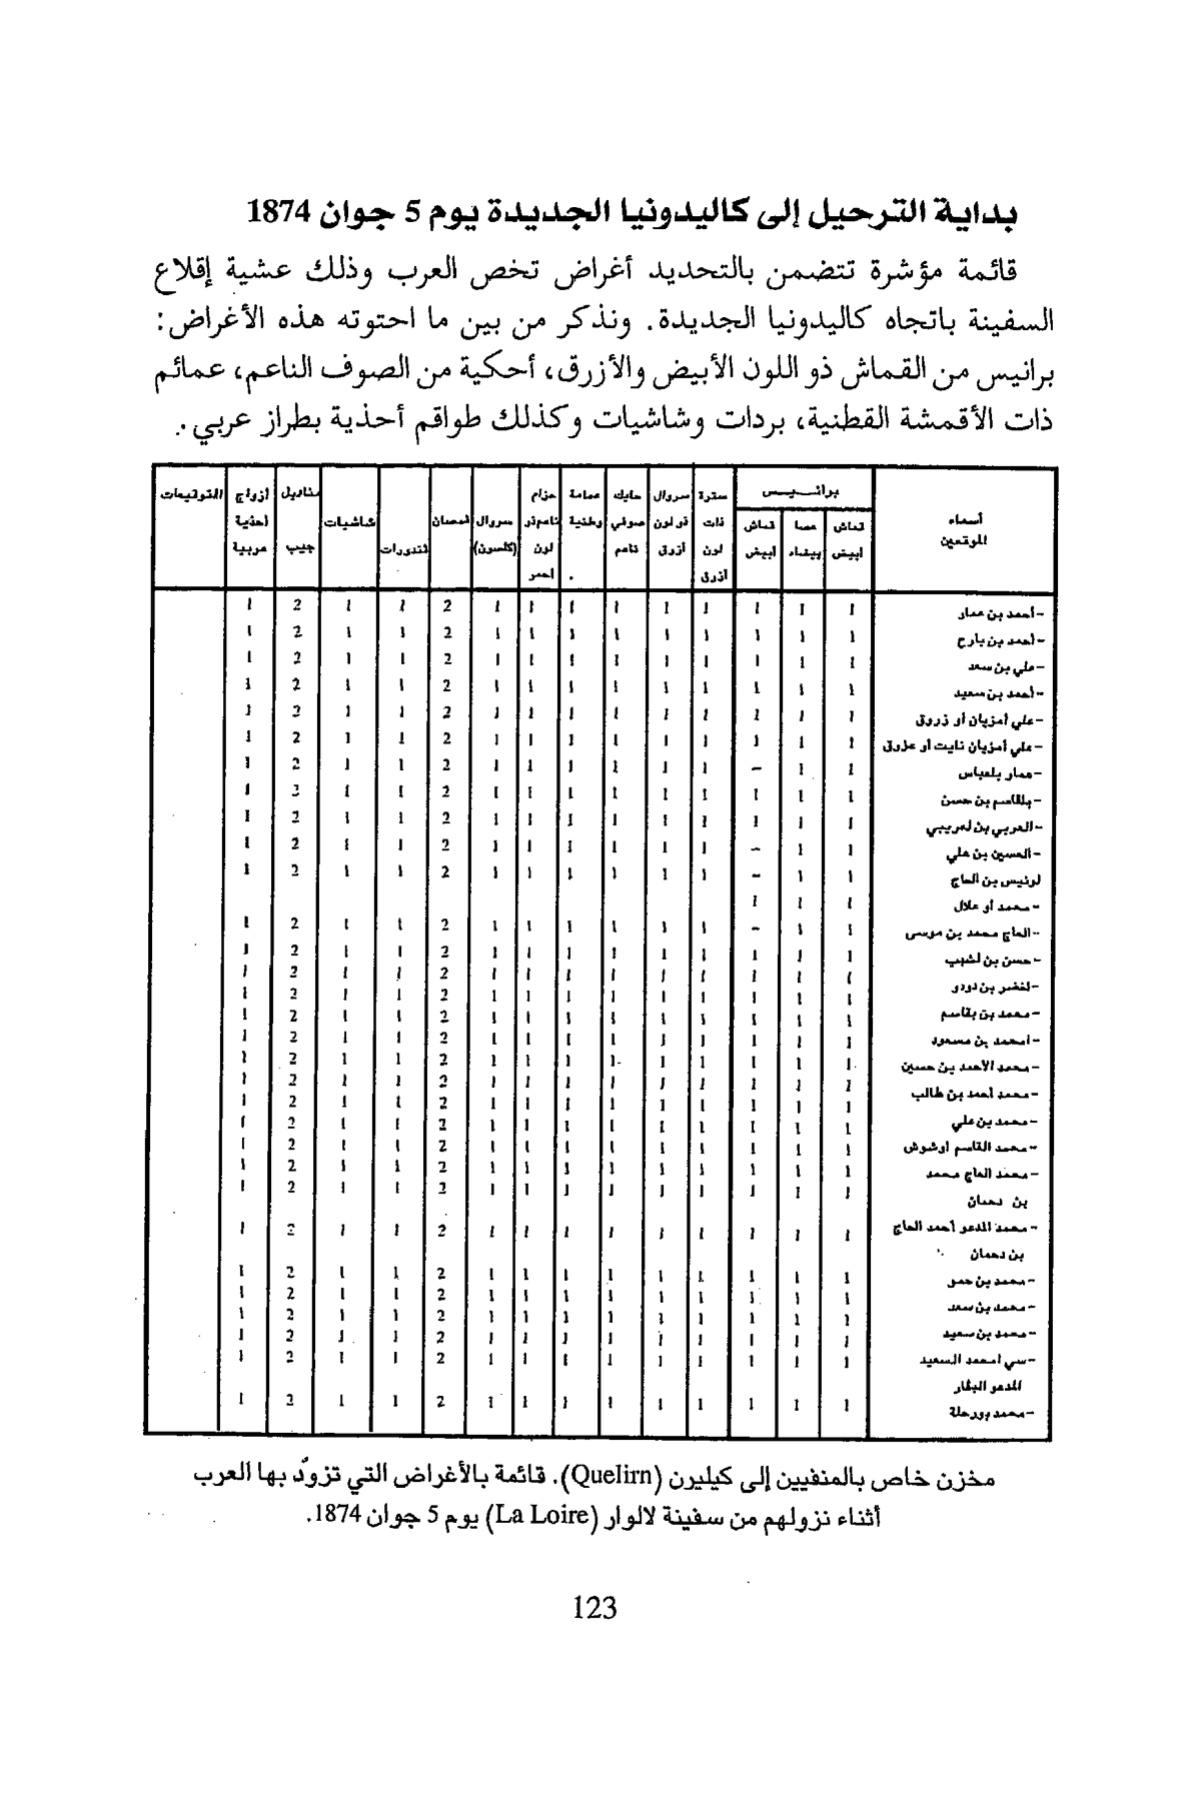 بداية الترحيل إلى كاليدونيا الجديدة يوم 5 جوان 1874
قائمة مؤشرة تتضمن بالتحديد أغراض تخص العرب وذلك عشية إقلاع
السفينة باتجاه كاليدونيا الجديدة. ونذكر من بين ما احتوته هذه الأغراض:
برانيس من القماش ذو اللون الأبيض والأزرق، أحكية من الصوف الناعم، عمائم
ذات الأقمشة القطنية، بردات وشاشيات وكذلك طواقم أحذية بطراز عربي.
أسماء الموقعين | برانيس: قماش أبيض | عصا بيضاء | قماش أبيض | سترة ذات لون أزرق | سروال ذو لون أزرق | حايك صوفي ناعم | عمامة وطنية | حزام ناعم ذو لون أحمر | سروال (كلسون) | قمصان | قندورات | شاشيات | مناديل جيب | أزواج أحذية عربية | التوقيعات
-أحمد بن عمار 1 1 1 1 1 1 1 1 1 2 1 1 2 1
-أحمد بن بارح 1 1 1 1 1 1 1 1 1 2 1 1 2 1
-علي بن سعد 1 1 1 1 1 1 1 1 1 2 1 1 2 1
-أحمد بن سعيد 1 1 1 1 1 1 1 1 1 2 1 1 2 1
-علي أمزيان أو زروق 1 1 1 1 1 1 1 1 1 2 1 1 2 1
-علي أمزيان نايت أو عزرق 1 1 1 1 1 1 1 1 1 2 1 1 2 1
-عمار بلعباس 1 1 – 1 1 1 1 1 1 2 1 1 2 1
-بلقاسم بن حسن 1 1 1 1 1 1 1 1 1 2 1 1 2 1
-العربي بن لعريبي 1 1 1 1 1 1 1 1 1 2 1 1 2 1
-الحسين بن علي 1 1 – 1 1 1 1 1 1 2 1 1 2 1
لونيس بن الحاج 1 1 – 1 1 1 1 1 1 2 1 1 2 1
-محمد أو علال 1 1 1
-الحاج محمد بن موسى 1 1 – 1 1 1 1 1 1 2 1 1 2 1
-حسن بن لشهب 1 1 1 1 1 1 1 1 1 2 1 1 2 1
-لخضر بن دودو 1 1 1 1 1 1 1 1 1 2 1 1 2 1
-محمد بن بقاسم 1 1 1 1 1 1 1 1 1 2 1 1 2 1
-امحمد بن مسعود 1 1 1 1 1 1 1 1 1 2 1 1 2 1
-محمد الأحمد بن حسين 1 1 1 1 1 1 1 1 1 2 1 1 2 1
-محمد أحمد بن طالب 1 1 1 1 1 1 1 1 1 2 1 1 2 1
-محمد بن علي 1 1 1 1 1 1 1 1 1 2 1 1 2 1
-محمد القاسم أوشوش 1 1 1 1 1 1 1 1 1 2 1 1 2 1
-محمد الحاج محمد 1 1 1 1 1 1 1 1 1 2 1 1 2 1
بن دحمان 1 1 1 1 1 1 1 1 1 2 1 1 2 1
-محمد المدعو أحمد الحاج 1 1 1 1 1 1 1 1 1 2 1 1 2 1
بن دحمان
-محمد بن حمو 1 1 1 1 1 1 1 1 1 2 1 1 2 1
-محمد بن سعد 1 1 1 1 1 1 1 1 1 2 1 1 2 1
-محمد بن سعيد 1 1 1 1 1 1 1 1 1 2 1 1 2 1
-سي امحمد السعيد 1 1 1 1 1 1 1 1 1 2 1 1 2 1
المدعو البقار 1 1 1 1 1 1 1 1 1 2 1 1 2 1
-محمد بورحلة 1 1 1 1 1 1 1 1 1 2 1 1 2 1
مخزن خاص بالمنفيين إلى كيليرن (Quelirn). قائمة بالأغراض التي تزوّد بها العرب
أثناء نزولهم من سفينة لالوار (La Loire) يوم 5 جوان 1874.
123